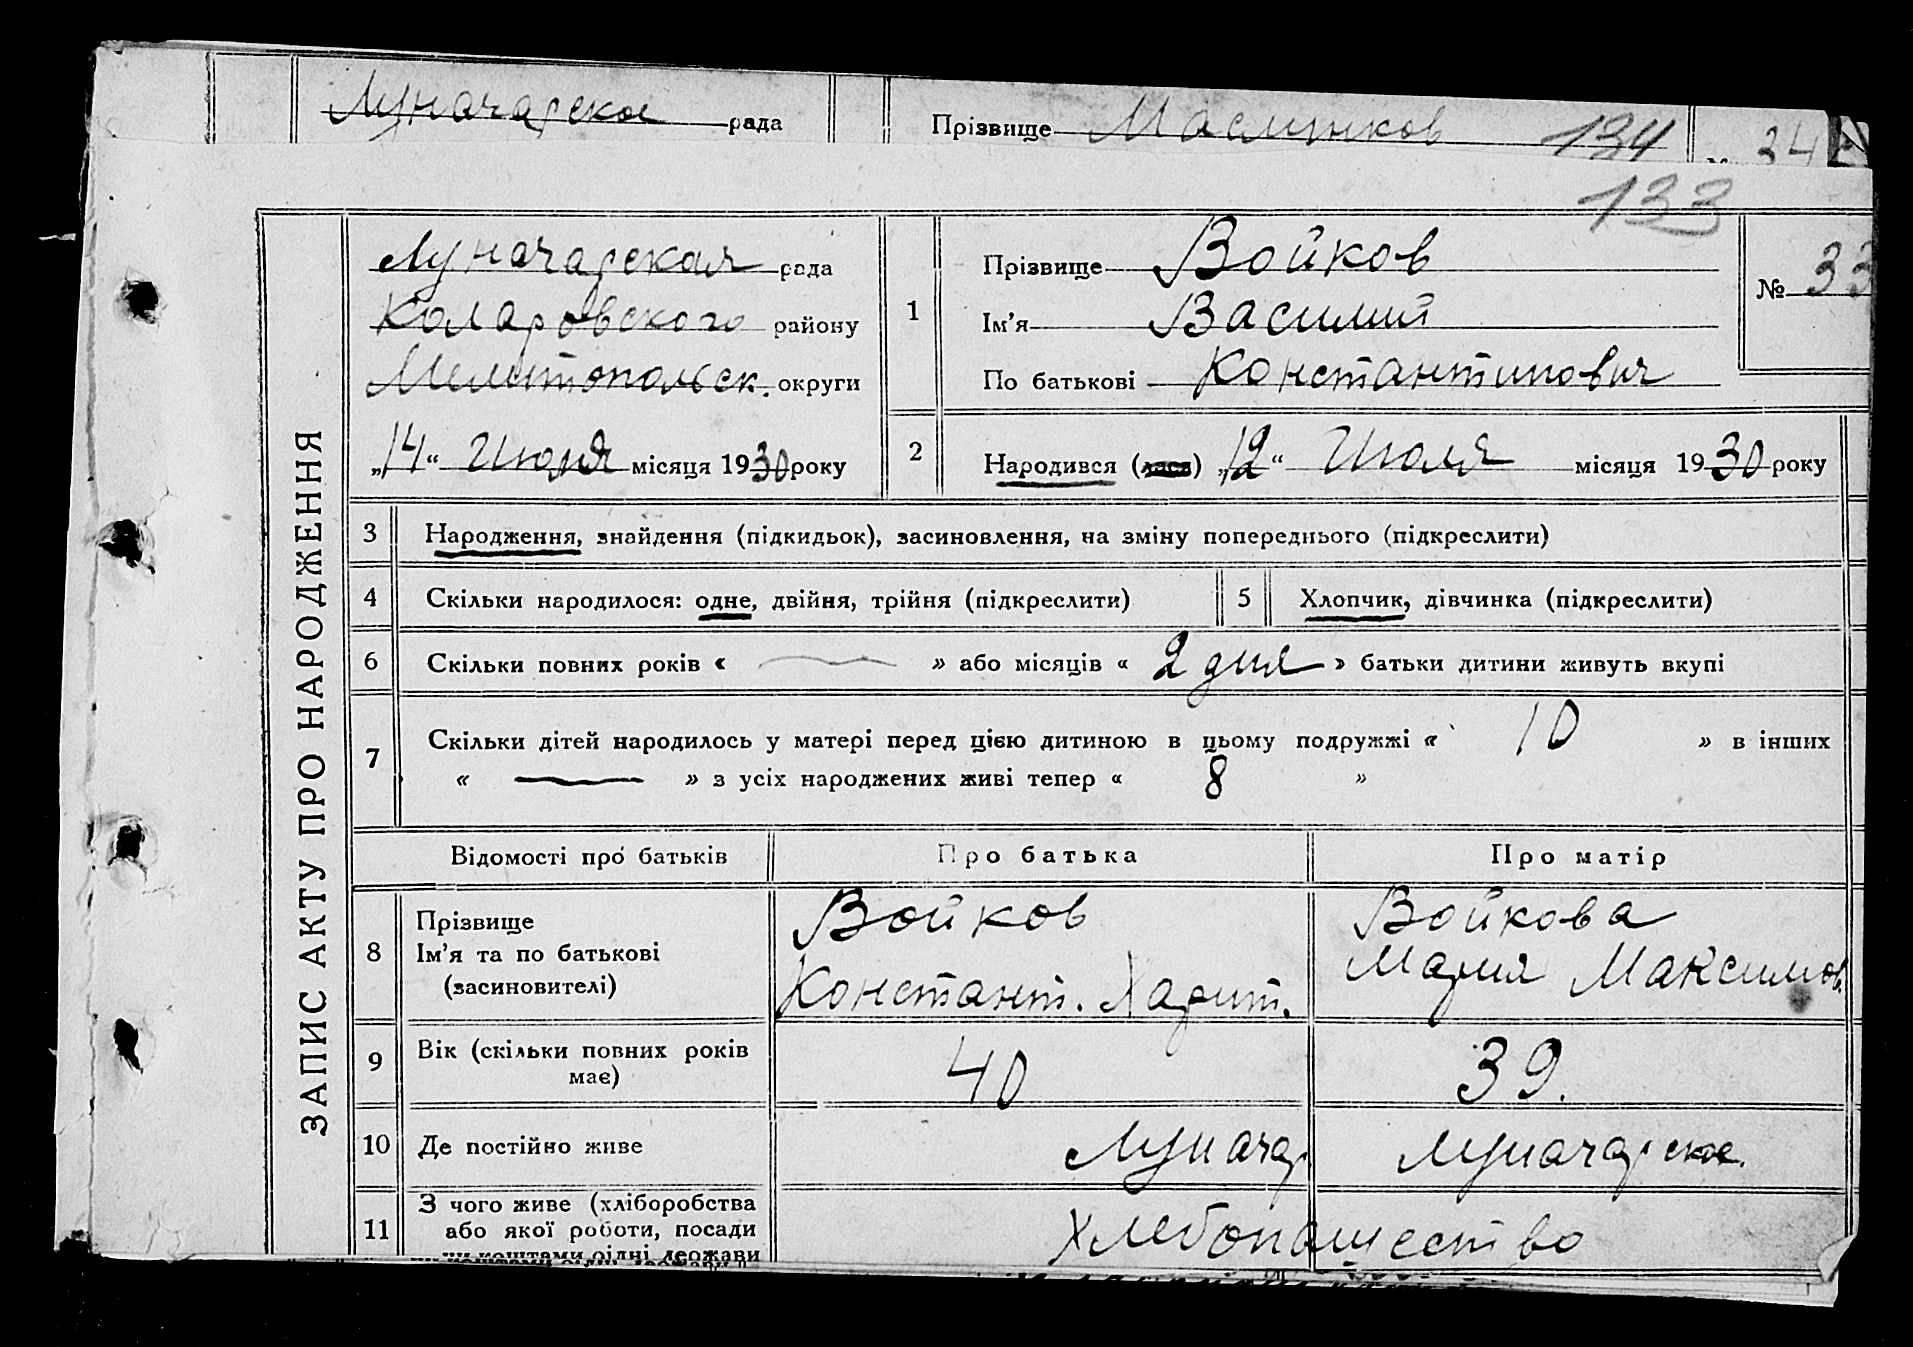 Луначарское рада
Прізвище Маслинков 134 34
133
ЗАПИС АКТУ ПРО НАРОДЖЕННЯ
Луначарская рада
Коларовского району
Мелитопольск. округи
„14“ Июля місяця 1930 року
1 Прізвище Войков
Ім’я Василий
По батькові Константинович
№ 33
2 Народився (лась) „12“ Июля місяця 1930 року
3 Народження, знайдення (підкидьок), засиновлення, на зміну попереднього (підкреслити)
4 Скільки народилося: одне, двійня, трійня (підкреслити) 5 Хлопчик, дівчинка (підкреслити)
6 Скільки повних років « — » або місяців « 2 дня » батьки дитини живуть вкупі
7 Скільки дітей народилось у матері перед цією дитиною в цьому подружжі « 10 » в інших
« — » з усіх народжених живі тепер « 8 »
Відомості про батьків Про батька Про матір
8 Прізвище Войков Войкова
Ім’я та по батькові Мария Максимов.
(засиновителі) Констант. Харит.
9 Вік (скільки повних років має) 40 39.
10 Де постійно живе Луначар Луначарское.
11 З чого живе (хліборобства
або якої роботи, посади Хлебопашество
чи коштами рідні, держави